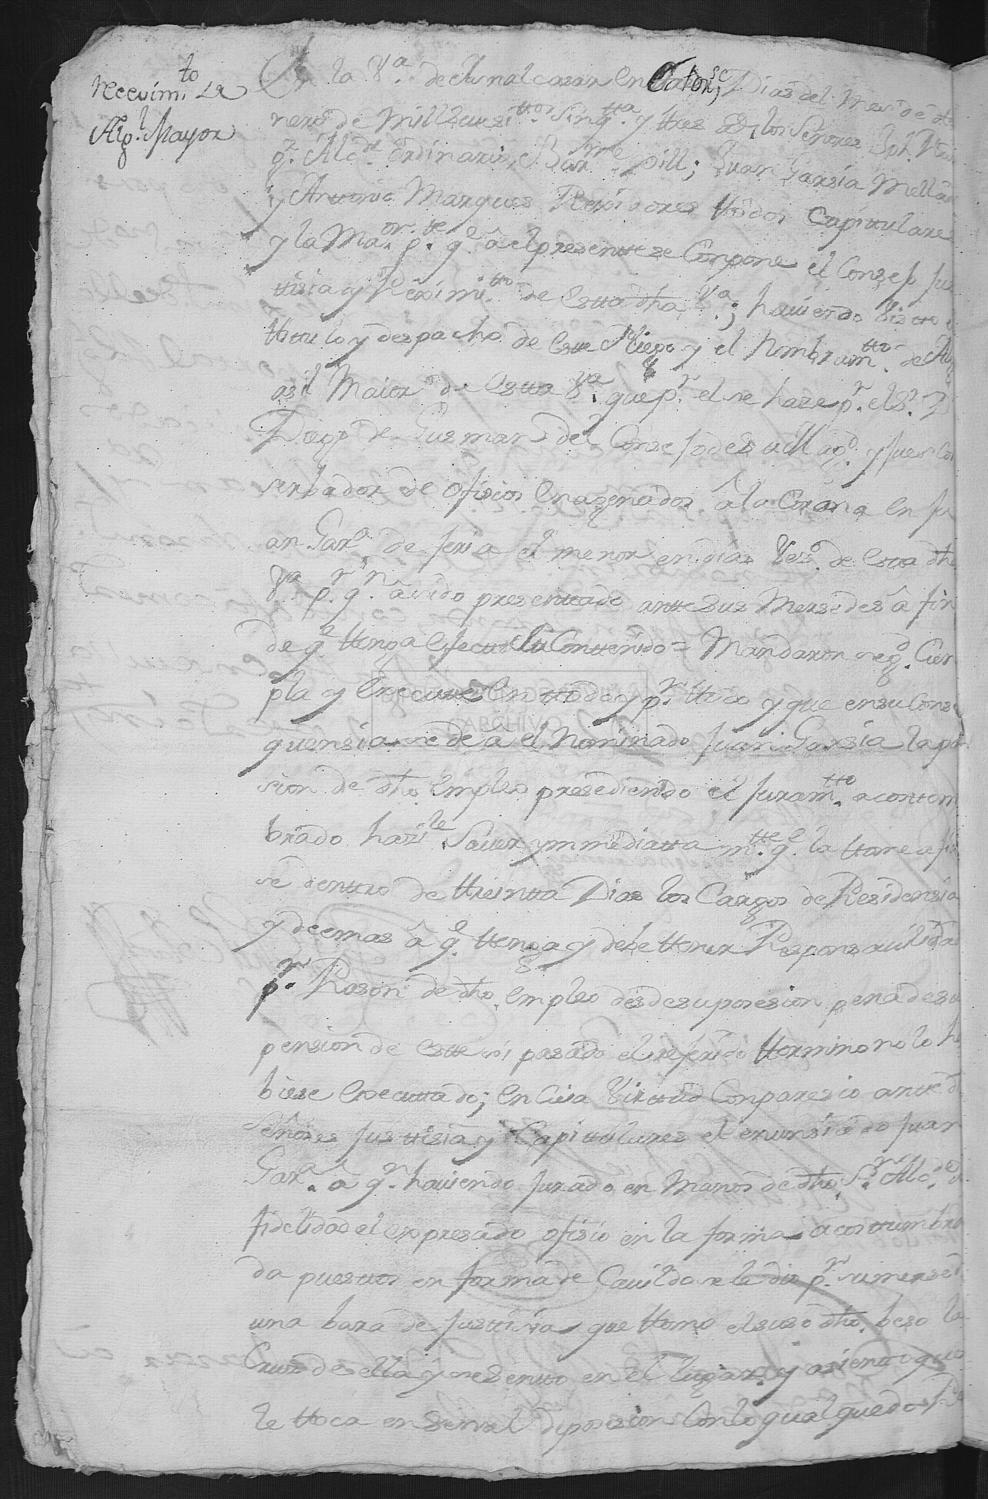 Recevim.to de
Alg.l Mayor
En la V.a de Aznalcazar en Catorse Dias del Mes de he
nero de Mill Setesi.ttos Sinq.tta y tres los Señores
Alc.de ordinario, Bar.me Pill; Juan Garsia Mellad
y Antonio Marques Rexidores ttodos Capittulares
y la Ma.or p.te q.e âel presentte se Conpone el Consejo Jus
ttisia y Reximi.tto de estta dha V.a; haviendo Vistto el
ttittulo y despacho de este Pliego y el Nombram.tto de Alg
asil Maior de Estta V.a que p.r el se haze p.r el S.r D.
Diego de Gusman del Consejo de su Mag.d y Jues Con
serbador de ofisios Enagenados â la Corona en Ju
an Gar.a de Feria el menor en dias Vez.o de esta dha
V.a p.r q.n â sido presenttado ante Sus Mersedes â fin
de q.e ttenga efectto su Conttenido = Mandaron se g.e Cum
pla y Execute en ttodo y p.r ttodo y que en su Cons
quensia se de a el Nominado Juan Garsia la po
sion de dho Empleo presediendo el Juram.tto acontem
brado
se dentro de ttreintta Dias los Cargos de Residensia
y demas â q.e ttenga y debe ttener Responsavilida
p.r Rason de dho Empleo desde su posesion pena de su
pension de este si pasado el referido ttermino no lo hu
biese Executtado; en Cuia Virttud Conparesio antte d
Señores Justtisia y Capittulares el enunsiado Juan
Gar.a â q.n haviendo Jurado en Manos de dho S.r Alc.de
fidelidad el expresado ofisio en la forma acosttumbra
da puestos en forma de Cavildo se le dio p.r su mersed
una bara de Justtisia que ttomo el suso dho beso la
Crus de ella y se sentto en el lugar y asientto que
le ttoca en Señal de posesion Con lo qual quedo
ARCHIVO